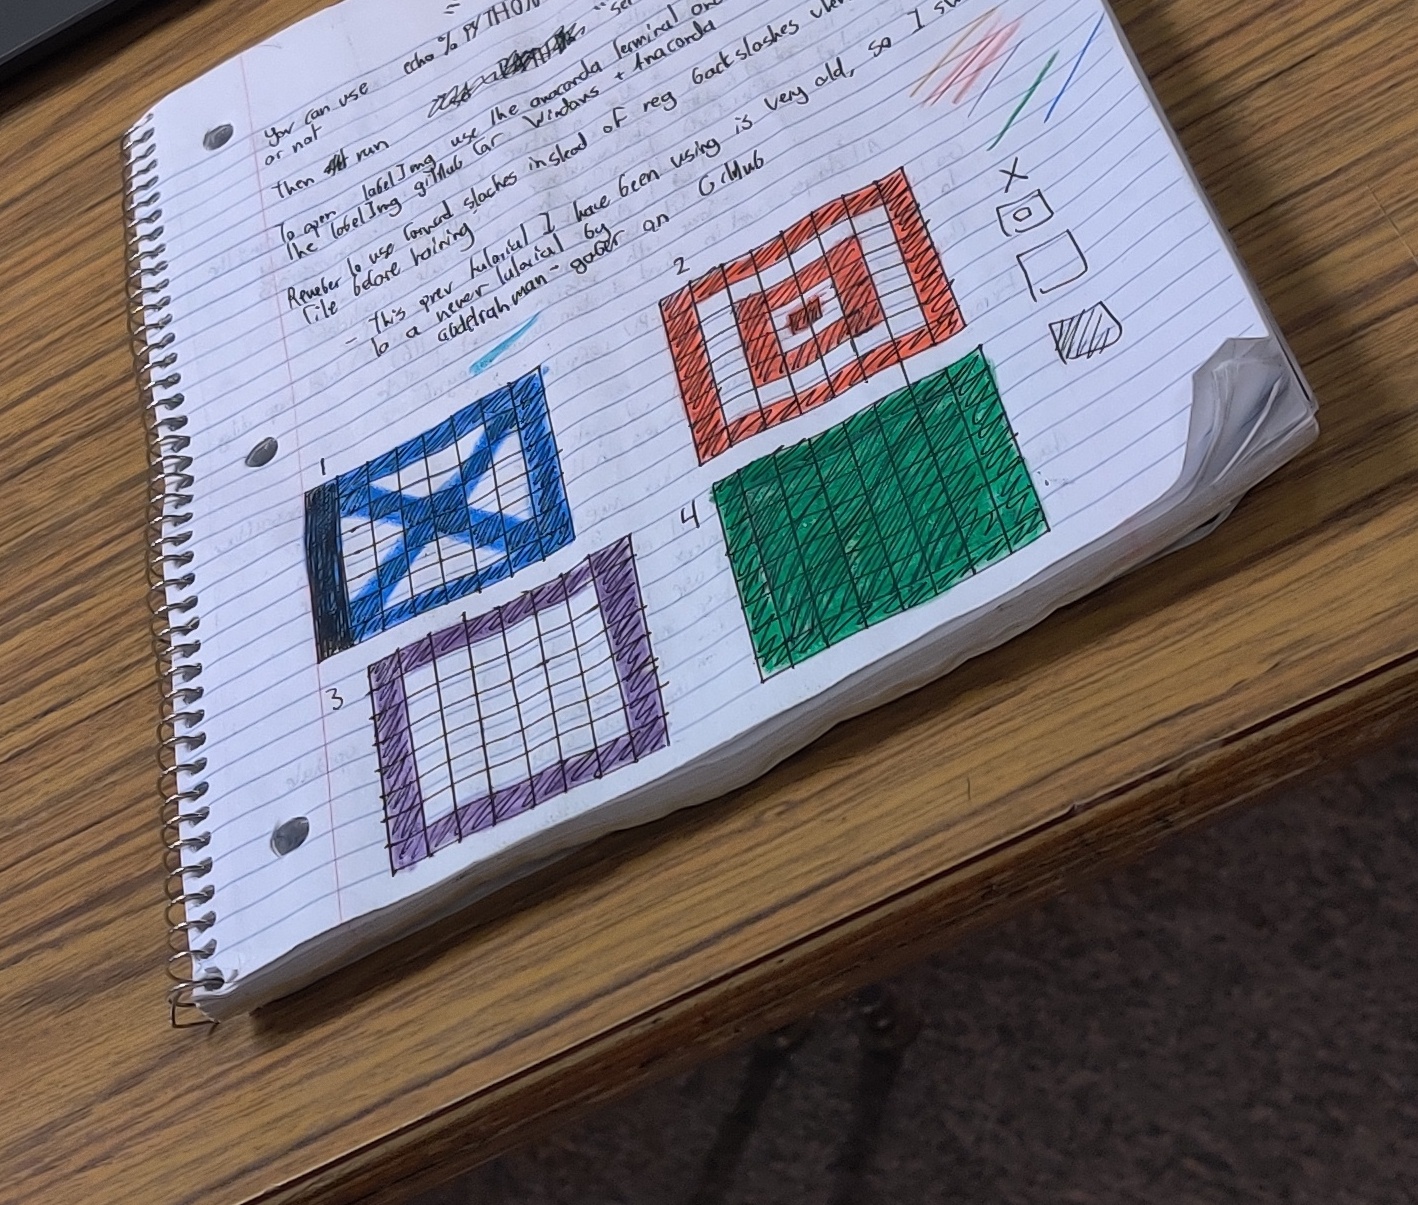 echo % PYTHON
You can use
or not
Then run
"se
To open labelImg use the anaconda Terminal and
the labelImg gitHub for Windows + Anaconda
Remeber to use forward slaches instead of reg backslashes
file before training
- This prev tutorial I have been using is very old, so I sw
to a never tutorial by
abdelrahman-gober on GitHub
1
2
3
4